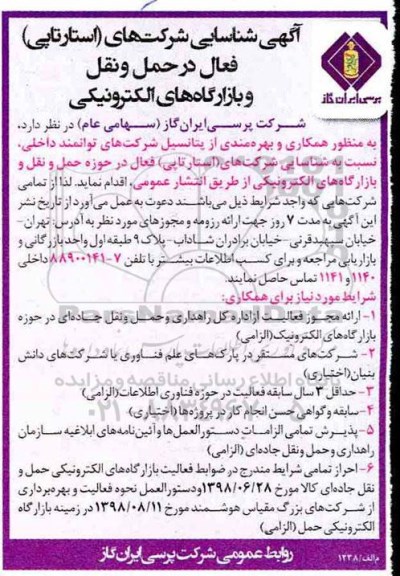 آگهی شناسایی شرکت‌های (استارتاپی)
فعال در حمل و نقل
و بازارگاه‌های الکترونیکی
پرسی ایران گاز
شرکت پرسی ایران گاز (سهامی عام) در نظر دارد،
به منظور همکاری و بهره‌مندی از پتانسیل شرکت‌های توانمند داخلی،
نسبت به شناسایی شرکت‌های (استارتاپی) فعال در حوزه حمل و نقل و
بازارگاه‌های الکترونیکی از طریق انتشار عمومی، اقدام نماید. لذا از تمامی
شرکت‌هایی که واجد شرایط ذیل می‌باشند دعوت به عمل می‌آورد از تاریخ نشر
این آگهی به مدت ۷ روز جهت ارائه رزومه و مجوزهای مورد نظر به آدرس: تهران-
خیابان سپهبدقرنی-خیابان برادران شاداب- پلاک ۹ طبقه اول واحد بازرگانی و
بازاریابی مراجعه و برای کسب اطلاعات بیشتر با تلفن ۷-۸۸۹۰۰۱۴۱ داخلی
۱۱۴۰ و ۱۱۴۱ تماس حاصل نمایند.
شرایط مورد نیاز برای همکاری:
۱- ارائه مجوز فعالیت از اداره کل راهداری و حمل و نقل جاده‌ای در حوزه
بازارگاه‌های الکترونیک (الزامی)
۲- شرکت‌های مستقر در پارک‌های علم فناوری یا شرکت‌های دانش
بنیان (اختیاری)
۳-حداقل ۳ سال سابقه فعالیت در حوزه فناوری اطلاعات (الزامی)
۴-سابقه و گواهی حسن انجام کار در پروژه‌ها (اختیاری)
۵- پذیرش تمامی الزامات دستورالعمل‌ها و آئین‌نامه‌های ابلاغیه سازمان
راهداری و حمل و نقل جاده‌ای (الزامی)
۶-احراز تمامی شرایط مندرج در ضوابط فعالیت بازارگاه‌های الکترونیکی حمل و
نقل جاده‌ای کالا مورخ ۱۳۹۸/۰۶/۲۸ و دستورالعمل نحوه فعالیت و بهره‌برداری
از شرکت‌های بزرگ مقیاس هوشمند مورخ ۱۳۹۸/۰۸/۱۱ در زمینه بازارگاه
الکترونیکی حمل (الزامی)
روابط عمومی شرکت پرسی ایران گاز
م الف/۱۲۳۸